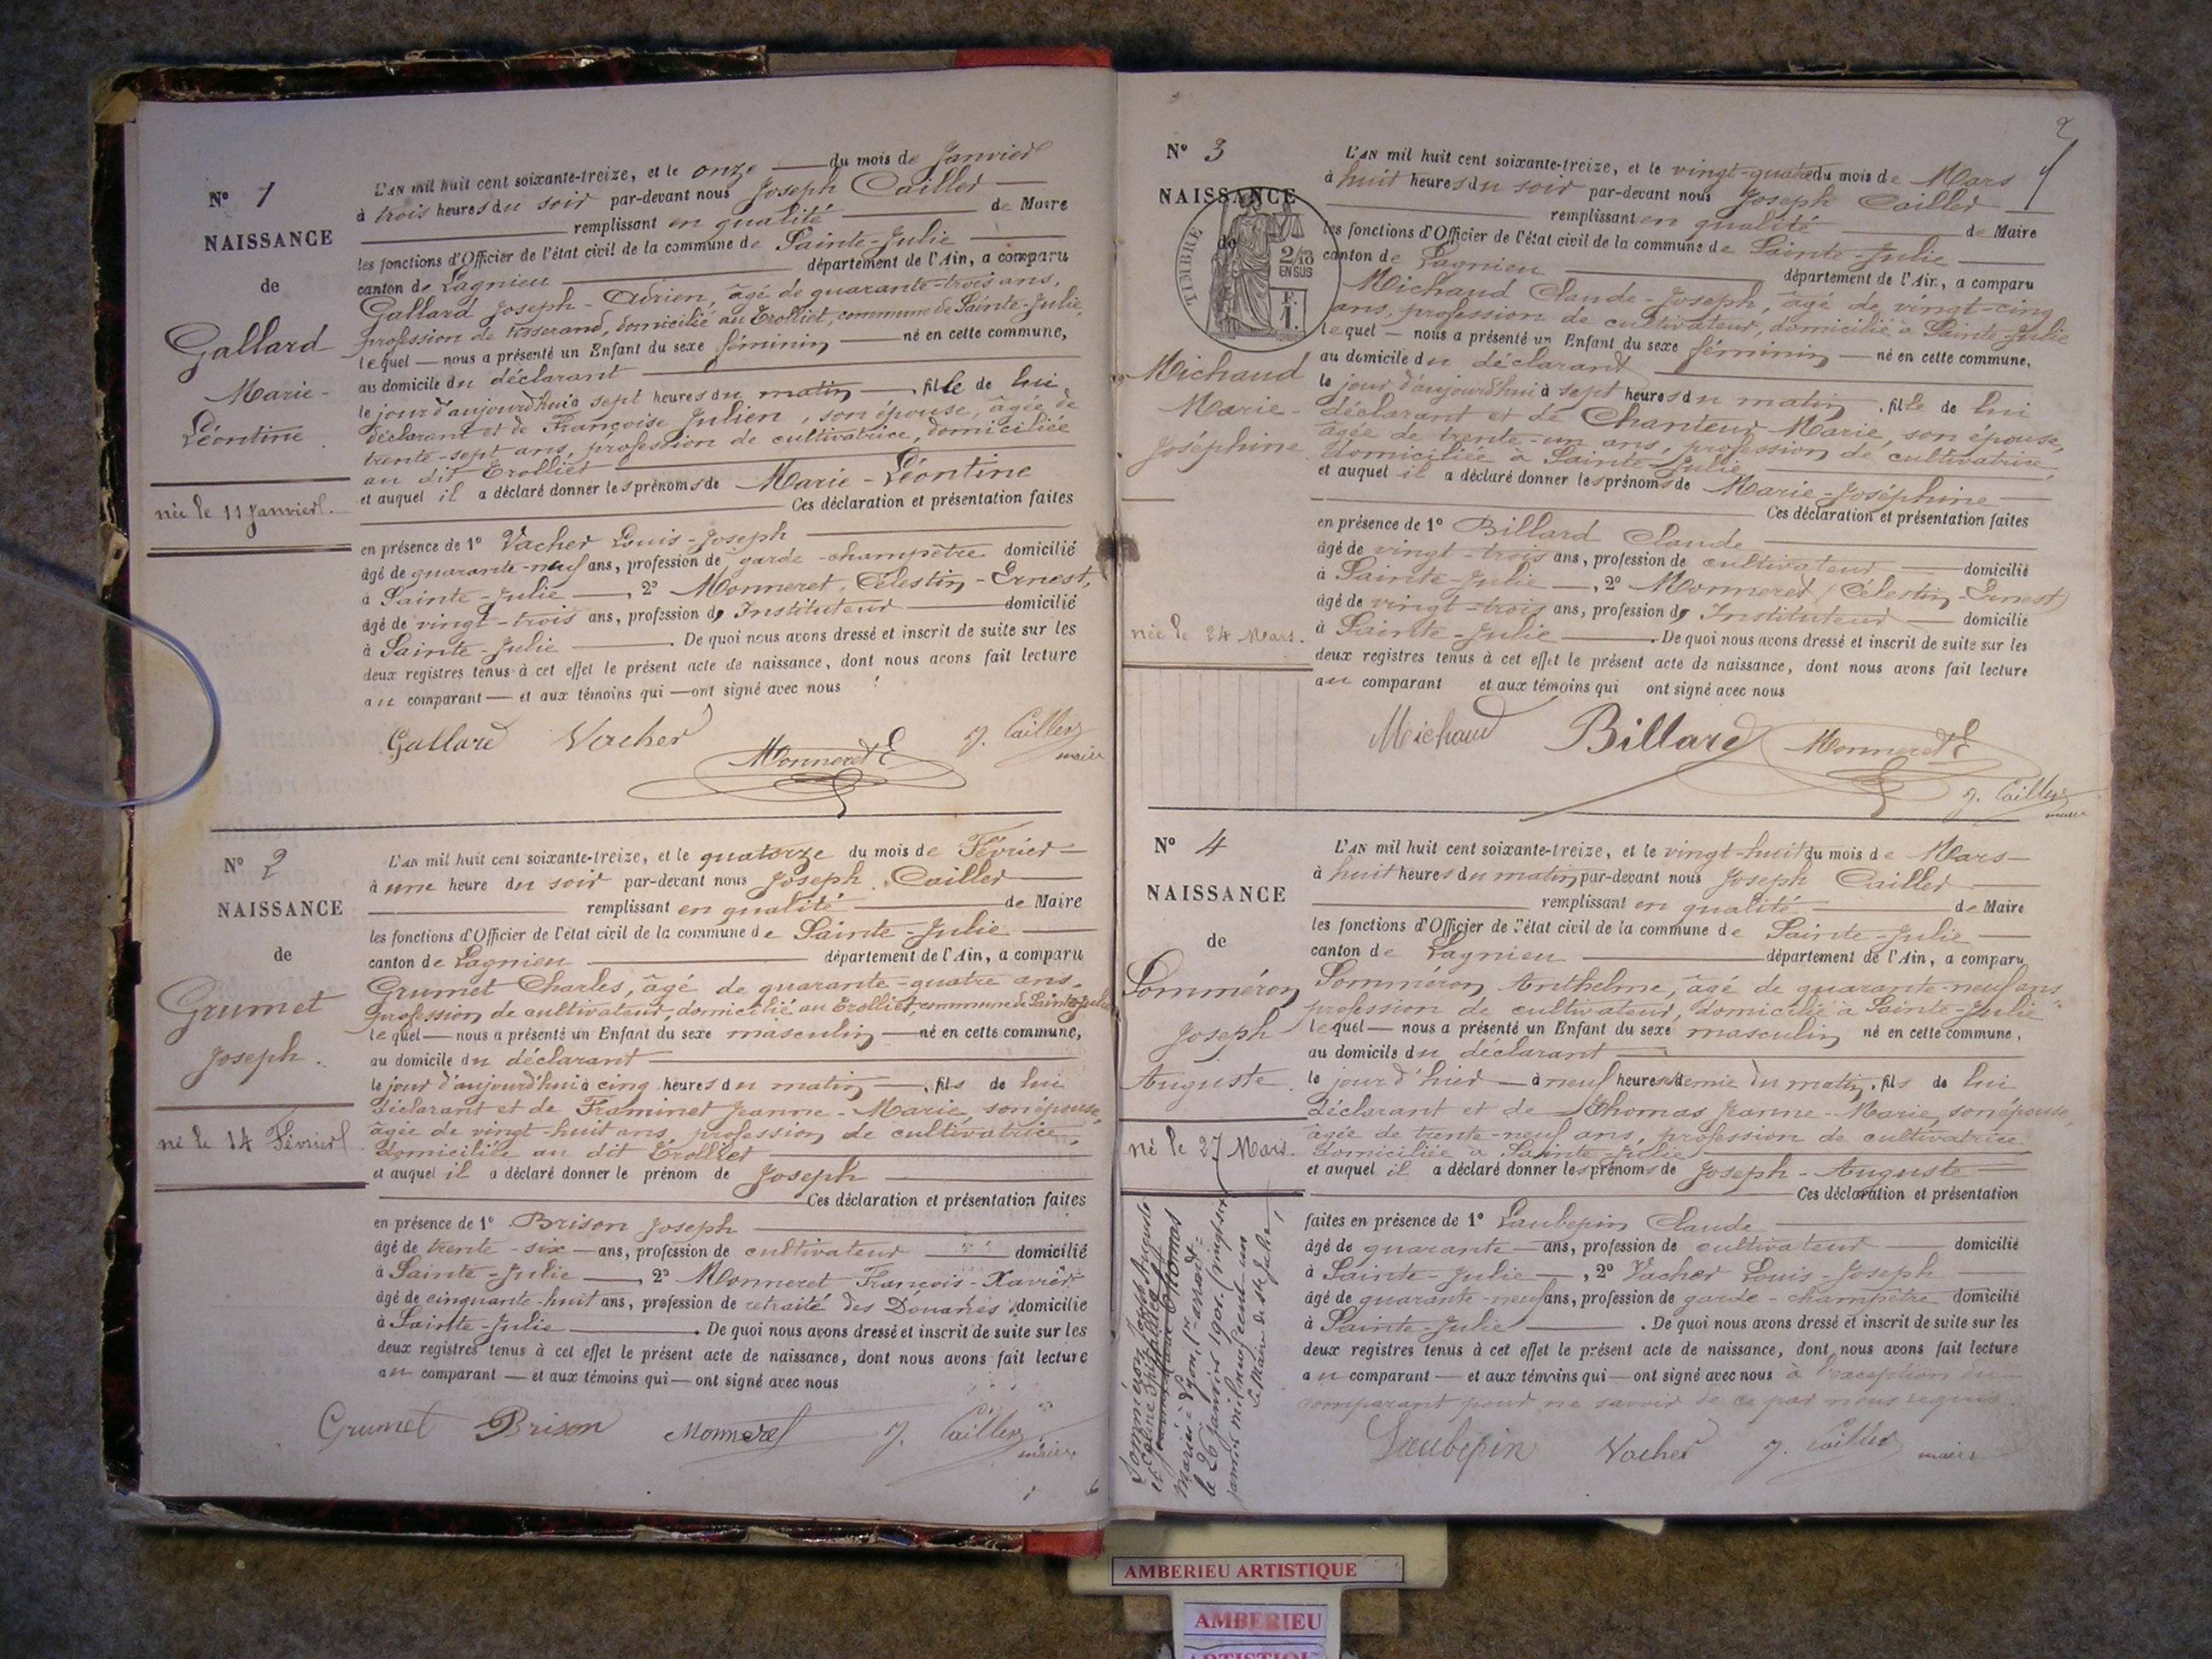 N° 1
NAISSANCE
de
Gallard
Marie-
Léontine
née le 11 Janvier.
L'AN mil huit cent soixante-treize, et le onze du mois de Janvier
à trois heures du soir par-devant nous Joseph Cailler
remplissant en qualité de Maire
les fonctions d'Officier de l'état civil de la commune de Sainte-Julie
canton de Lagnieu département de l'Ain, a comparu
Gallard Joseph-Adrien, âgé de quarante-trois ans,
profession de tisserand, domicilié au Trolliet, commune de Sainte-Julie,
lequel — nous a présenté un Enfant du sexe féminin né en cette commune,
au domicile du déclarant
le jour d'aujourd'hui à sept heures du matin, fille de lui
déclarant et de Françoise Julien, son épouse, âgée de
trente-sept ans, profession de cultivatrice, domiciliée
au dit Trolliet
et auquel il a déclaré donner les prénoms de Marie-Léontine
Ces déclaration et présentation faites
en présence de 1° Vacher Louis-Joseph
âgé de quarante-neuf ans, profession de garde-champêtre domicilié
à Sainte-Julie, 2° Monneret, Célestin-Ernest,
âgé de vingt-trois ans, profession de Instituteur domicilié
à Sainte-Julie. De quoi nous avons dressé et inscrit de suite sur les
deux registres tenus à cet effet le présent acte de naissance, dont nous avons fait lecture
au comparant — et aux témoins qui — ont signé avec nous
Gallard Vacher Monneret E J. Cailler
maire
N° 2
NAISSANCE
de
Grumet
Joseph.
né le 14 Février
L'AN mil huit cent soixante-treize, et le quatorze du mois de Février
à une heure du soir par-devant nous Joseph Cailler
remplissant en qualité de Maire
les fonctions d'Officier de l'état civil de la commune de Sainte-Julie
canton de Lagnieu département de l'Ain, a comparu
Grumet Charles, âgé de quarante-quatre ans,
profession de cultivateur, domicilié au Trolliet, commune de Sainte-Julie
lequel — nous a présenté un Enfant du sexe masculin — né en cette commune,
au domicile du déclarant
le jour d'aujourd'hui à cinq heures du matin, fils de lui
déclarant et de Framinet Jeanne-Marie, son épouse,
âgée de vingt-huit ans, profession de cultivatrice,
domiciliée au dit Trolliet
et auquel il a déclaré donner le prénom de Joseph
Ces déclaration et présentation faites
en présence de 1° Brison Joseph
âgé de trente-six — ans, profession de cultivateur domicilié
à Sainte-Julie, 2° Monneret François-Xavier
âgé de cinquante-huit ans, profession de retraité des Douanes domicilié
à Sainte-Julie. De quoi nous avons dressé et inscrit de suite sur les
deux registres tenus à cet effet le présent acte de naissance, dont nous avons fait lecture
au comparant — et aux témoins qui — ont signé avec nous
Grumet Brison Monneret J. Cailler
maire
2
N° 3
NAISSANCE
de
TIMBRE
2/10
EN SUS
F.
1.
Michaud
Marie-
Joséphine
née le 24 Mars.
L'AN mil huit cent soixante-treize, et le vingt-quatre du mois de Mars
à huit heures du soir par-devant nous Joseph Cailler
remplissant en qualité de Maire
les fonctions d'Officier de l'état civil de la commune de Sainte-Julie
canton de Lagnieu département de l'Ain, a comparu
Michaud Claude-Joseph, âgé de vingt-cinq
ans, profession de cultivateur, domicilié à Sainte-Julie
lequel — nous a présenté un Enfant du sexe féminin — né en cette commune.
au domicile du déclarant
le jour d'aujourd'hui à sept heures du matin, fille de lui
déclarant et de Chanteur Marie, son épouse,
âgée de trente-un ans, profession de cultivatrice,
domiciliée à Sainte-Julie
et auquel il a déclaré donner les prénoms de Marie-Joséphine
Ces déclaration et présentation faites
en présence de 1° Billard Claude
âgé de vingt-trois ans, profession de cultivateur domicilié
à Sainte-Julie, 2° Monneret (Célestin-Ernest)
âgé de vingt-trois ans, profession de Instituteur domicilié
à Sainte-Julie. De quoi nous avons dressé et inscrit de suite sur les
deux registres tenus à cet effet le présent acte de naissance, dont nous avons fait lecture
au comparant et aux témoins qui ont signé avec nous
Michaud Billard Monneret E
J. Cailler
maire
N° 4
NAISSANCE
de
Domméron
Joseph
Auguste.
né le 27 Mars.
L'AN mil huit cent soixante-treize, et le vingt-huit du mois de Mars
à huit heures du matin par-devant nous Joseph Cailler
remplissant en qualité de Maire
les fonctions d'Officier de l'état civil de la commune de Sainte-Julie
canton de Lagnieu département de l'Ain, a comparu
Domméron Anthelme, âgé de quarante-neuf ans,
profession de cultivateur, domicilié à Sainte-Julie
lequel — nous a présenté un Enfant du sexe masculin né en cette commune,
au domicile du déclarant
le jour d'hier — à neuf heures et demie du matin, fils de lui
déclarant et de Thomas Jeanne-Marie, son épouse,
âgée de trente-neuf ans, profession de cultivatrice
domiciliée à Sainte-Julie
et auquel il a déclaré donner les prénoms de Joseph-Auguste
Ces déclaration et présentation
faites en présence de 1° Laubepin Claude
âgé de quarante — ans, profession de cultivateur domicilié
à Sainte-Julie, 2° Vacher Louis-Joseph
âgé de quarante-neuf ans, profession de garde-champêtre domicilié
à Sainte-Julie. De quoi nous avons dressé et inscrit de suite sur les
deux registres tenus à cet effet le présent acte de naissance, dont nous avons fait lecture
au comparant — et aux témoins qui — ont signé avec nous à l'exception du
comparant pour ne savoir de ce par nous requis.
Laubepin Vacher J. Cailler maire
Domméron Joseph Auguste
et
Jeanne Marie Thomas
mariés à Lyon, 1er arrondt
le 26 janvier 1901. (vingt six
janvier mil neuf cent un
Le Maire de Ste Julie,
AMBERIEU ARTISTIQUE
AMBERIEU
ARTISTIQUE